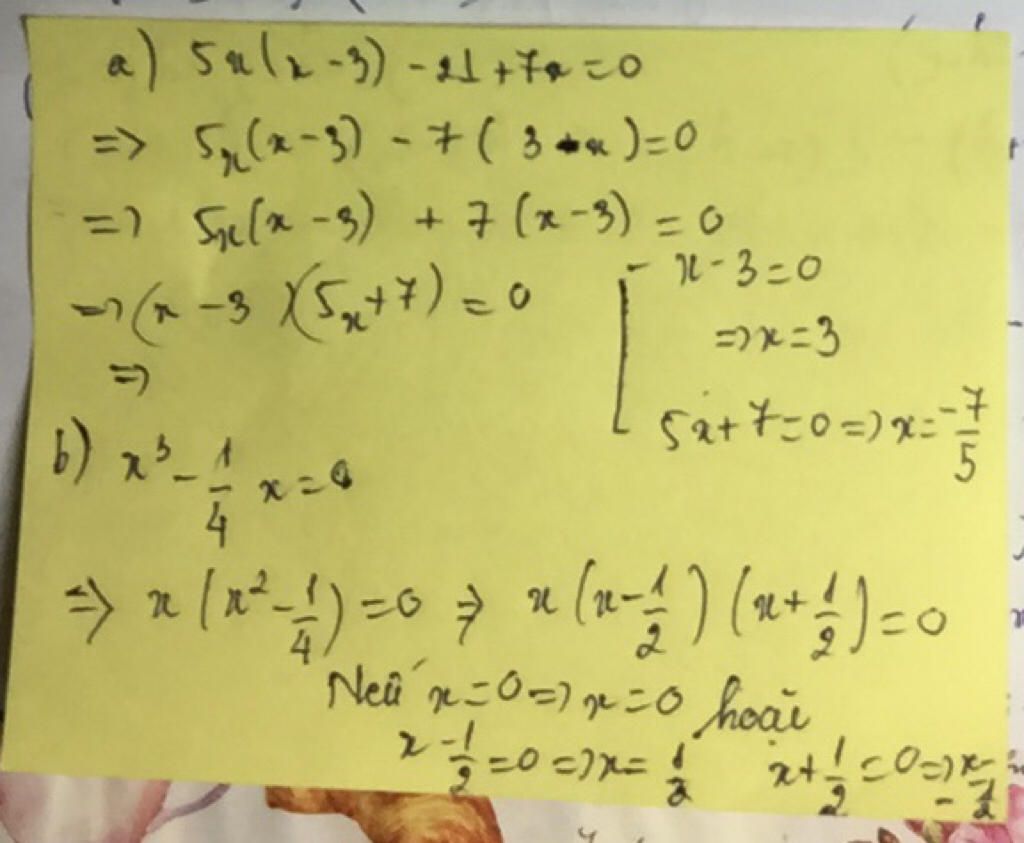 a) 5x(x-3) - 21 + 7x = 0
=> 5x(x-3) - 7(3-x) = 0
=> 5x(x-3) + 7(x-3) = 0
=> (x-3)(5x+7) = 0
=>
x-3=0
=> x=3
5x+7=0 => x= -7/5
b) x³ - 1/4 x = 0
=> x(x² - 1/4) = 0 => x(x - 1/2)(x + 1/2) = 0
Nếu x=0 => x=0 hoặc
x - 1/2 = 0 => x = 1/2 x + 1/2 = 0 => x = -1/2